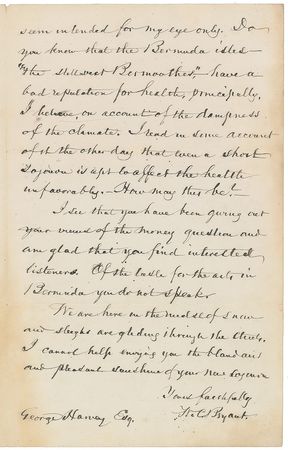 seem intended for my eye only. Do
you know that the Bermuda isles
"the still vext Bermoothes," have a
bad reputation for health, principally,
I believe, on account of the dampness
of the climate. I read in some account
of it the other day that even a short
sojourn is apt to affect the health
unfavorably. – How may this be?
I see that you have been giving out
your views of the money question and
am glad that you find interested
listeners. Of the taste for the arts in
Bermuda you do not speak.
We are here in the midst of snow
and sleighs are gliding through the streets.
I cannot help envying you the bland air
and pleasant sunshine of your new sojourn
Yours faithfully
W. C. Bryant.
George Harvey Esq.